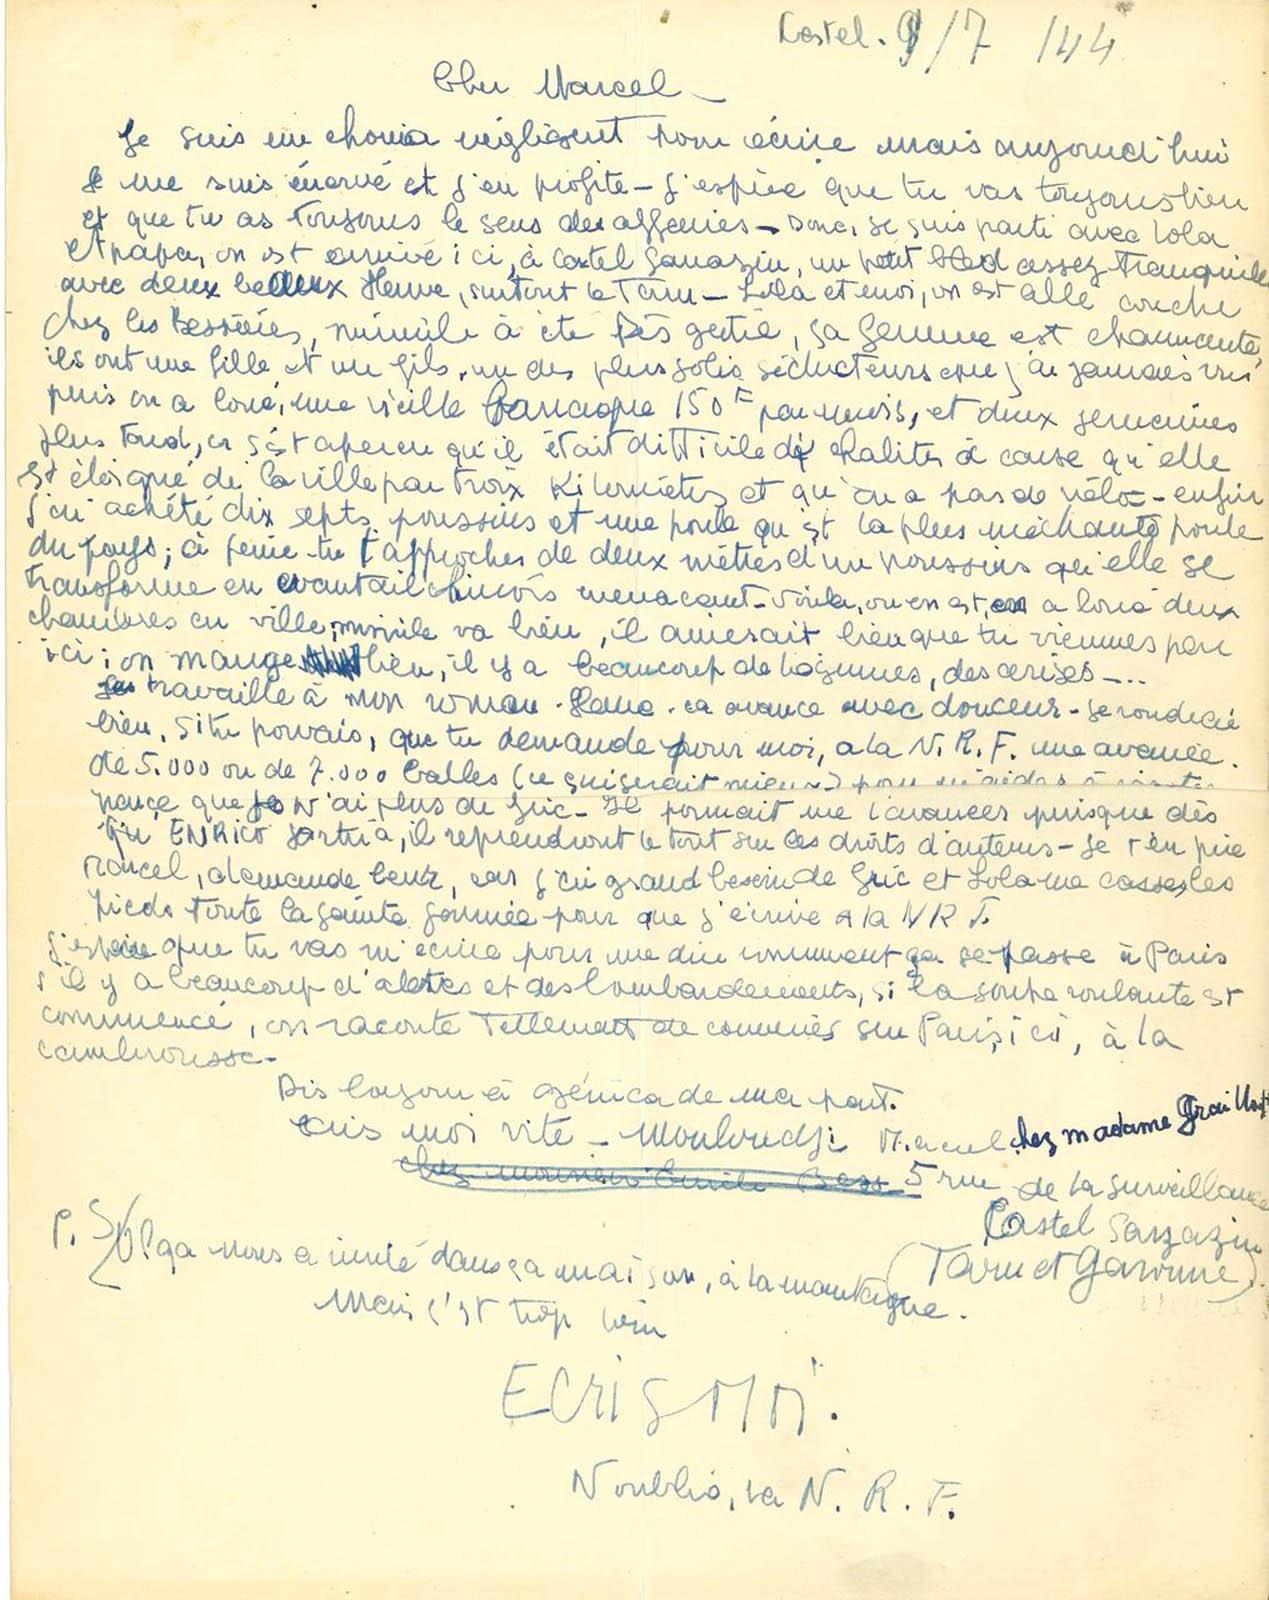 Castel. 9/7 /44
Cher Marcel -
Je suis un chouia négligent pour écrire mais aujourd'hui
je me suis énervé et j'en profite - j'espère que tu vas toujours bien
et que tu as toujours le sens des affaires - Donc, je suis parti avec Lola
et papa, on est arrivé ici, à Castel Sarrazin, un petit bled assez tranquille
avec deux beaux fleuve, surtout le Tarn - Lola et moi, on est allé couché
chez les Bessières, à été très gentil, sa femme est charmante,
ils ont une fille et un fils, un des plus jolis séducteurs que j'ai jamais vus
puis on a loué, une vieille baraque 150 F par mois, et deux semaines
plus tard, on s'est aperçu qu'il était difficile d'y habiter à cause qu'elle
est éloigné de la ville par trois Kilomètres et qu'on a pas de vélo - enfin
j'ai achété dix septs poussins et une poule qu'est la plus méchante poule
du pays; à peine tu t'approches de deux mètres d'un poussins qu'elle se
transforme en évantail chinois menacant - Voila, on en est, on a loué deux
chambres en ville, va bien, il aimerait bien que tu viennes par
ici; on mange bien, il y a beaucoup de légumes, des cerises - ...
Je travaille à mon roman. ca avance avec douceur -
bien, si tu pouvais, que tu demande pour moi, a la N.R.F. une avance.
de 5.000 ou de 7.000 balles (ce qui serait mieux) pour m'aider à
parce que je n'ai plus de fric - Il pourrait me l'avancer puisque dès
qu'ENRICO sortira, il reprendront le tout sur les droits d'auteurs - Je t'en prie
Marcel, demande leur, car j'ai grand besoin de fric et Lola me casse les
pieds toute la sainte journée pour que j'écrive a la NRF.
j'espère que tu vas m'écrire pour me dire comment ça se passe à Paris
s'il y a beaucoup d'alertes et des bombardements, si la soupe roulante est
commencé, on raconte tellement de conneries sur Paris, ici, à la
cambrousse -
Dis bonjour à de ma part.
écris moi vite - Mouloudji Marcel chez madame
chez monsieur Emile Bess 5 rue de la surveillance
Castel Sarrazin
(Tarn et Garonne).
P.S. Olga nous a invité dans sa maison, à la montagne.
Mais c'est trop loin
ECRIS MOI.
N'oublis, la N.R.F.